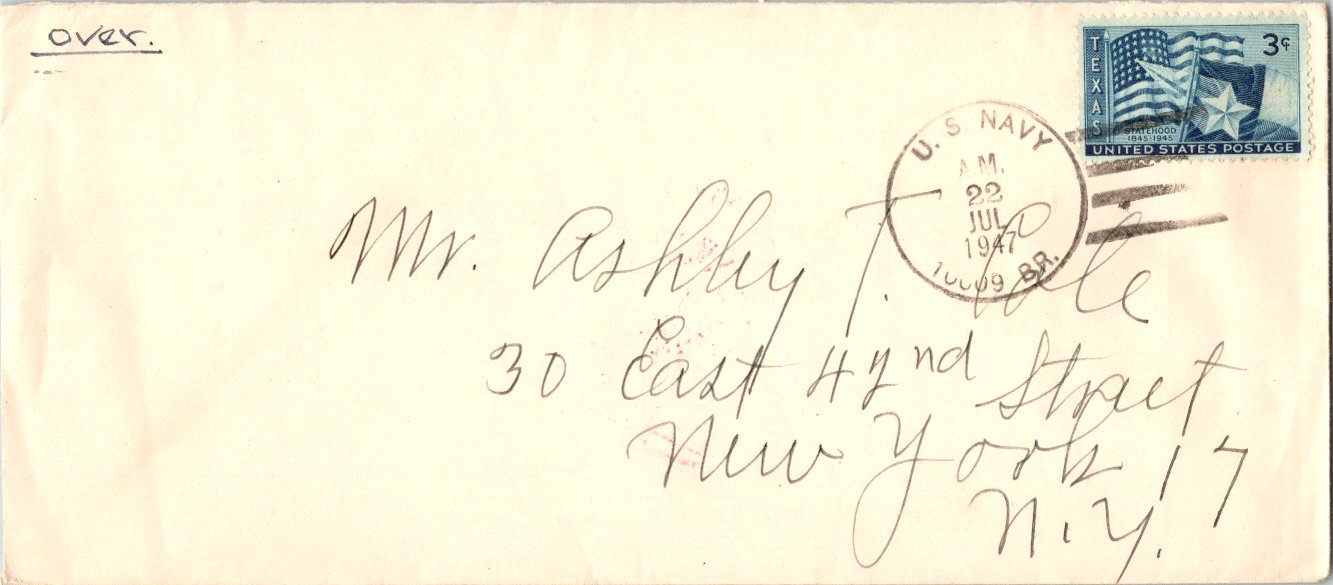 over.
TEXAS
3¢
STATEHOOD
1845-1945
UNITED STATES POSTAGE
U.S NAVY
A.M.
22
JUL
1947
BR.
Mr. Ashley T. Cole
30 East 42nd Street
New York 17
N.Y.